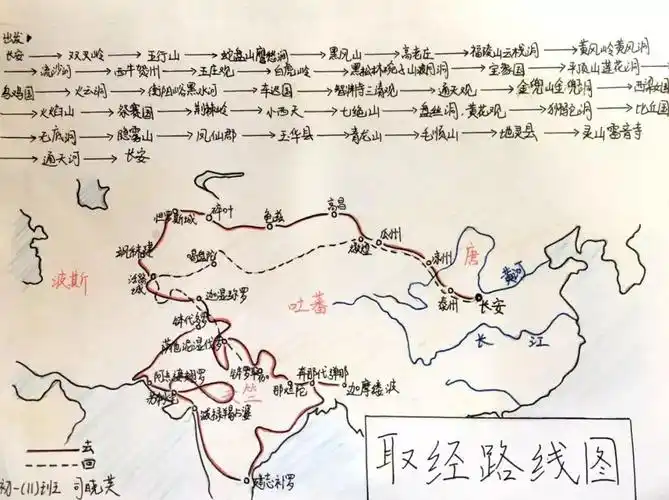 出发
长安 → 双叉岭 → 五行山 → 蛇盘山鹰愁涧 → 黑风山 → 高老庄 → 福陵山云栈洞 → 黄风岭黄风洞
→ 流沙河 → 西牛贺州 → 五庄观 → 白虎岭 → 黑松林碗子山波月洞 → 宝象国 → 平顶山莲花洞 →
乌鸡国 → 火云洞 → 衡阳峪黑水河 → 车迟国 → 智渊寺三清观 → 通天观 → 金兜山金兜洞 → 西梁女国
→ 火焰山 → 祭赛国 → 荆棘岭 → 小西天 → 七绝山 → 盘丝洞、黄花观 → 狮驼洞 → 比丘国
→ 无底洞 → 隐雾山 → 凤仙郡 → 玉华县 → 青龙山 → 毛颖山 → 地灵县 → 灵山雷音寺
→ 通天河 → 长安
怛罗斯城
碎叶
龟兹
高昌
敦煌
瓜州
凉州
秦州
长安
唐
黄河
波斯
活国城
朅盘陀
迦湿弥罗
吐蕃
长江
钵代多罗
那烂陀
奔那伐弹那
迦摩缕波
天竺
去
回
初一(11)班
取经路线图